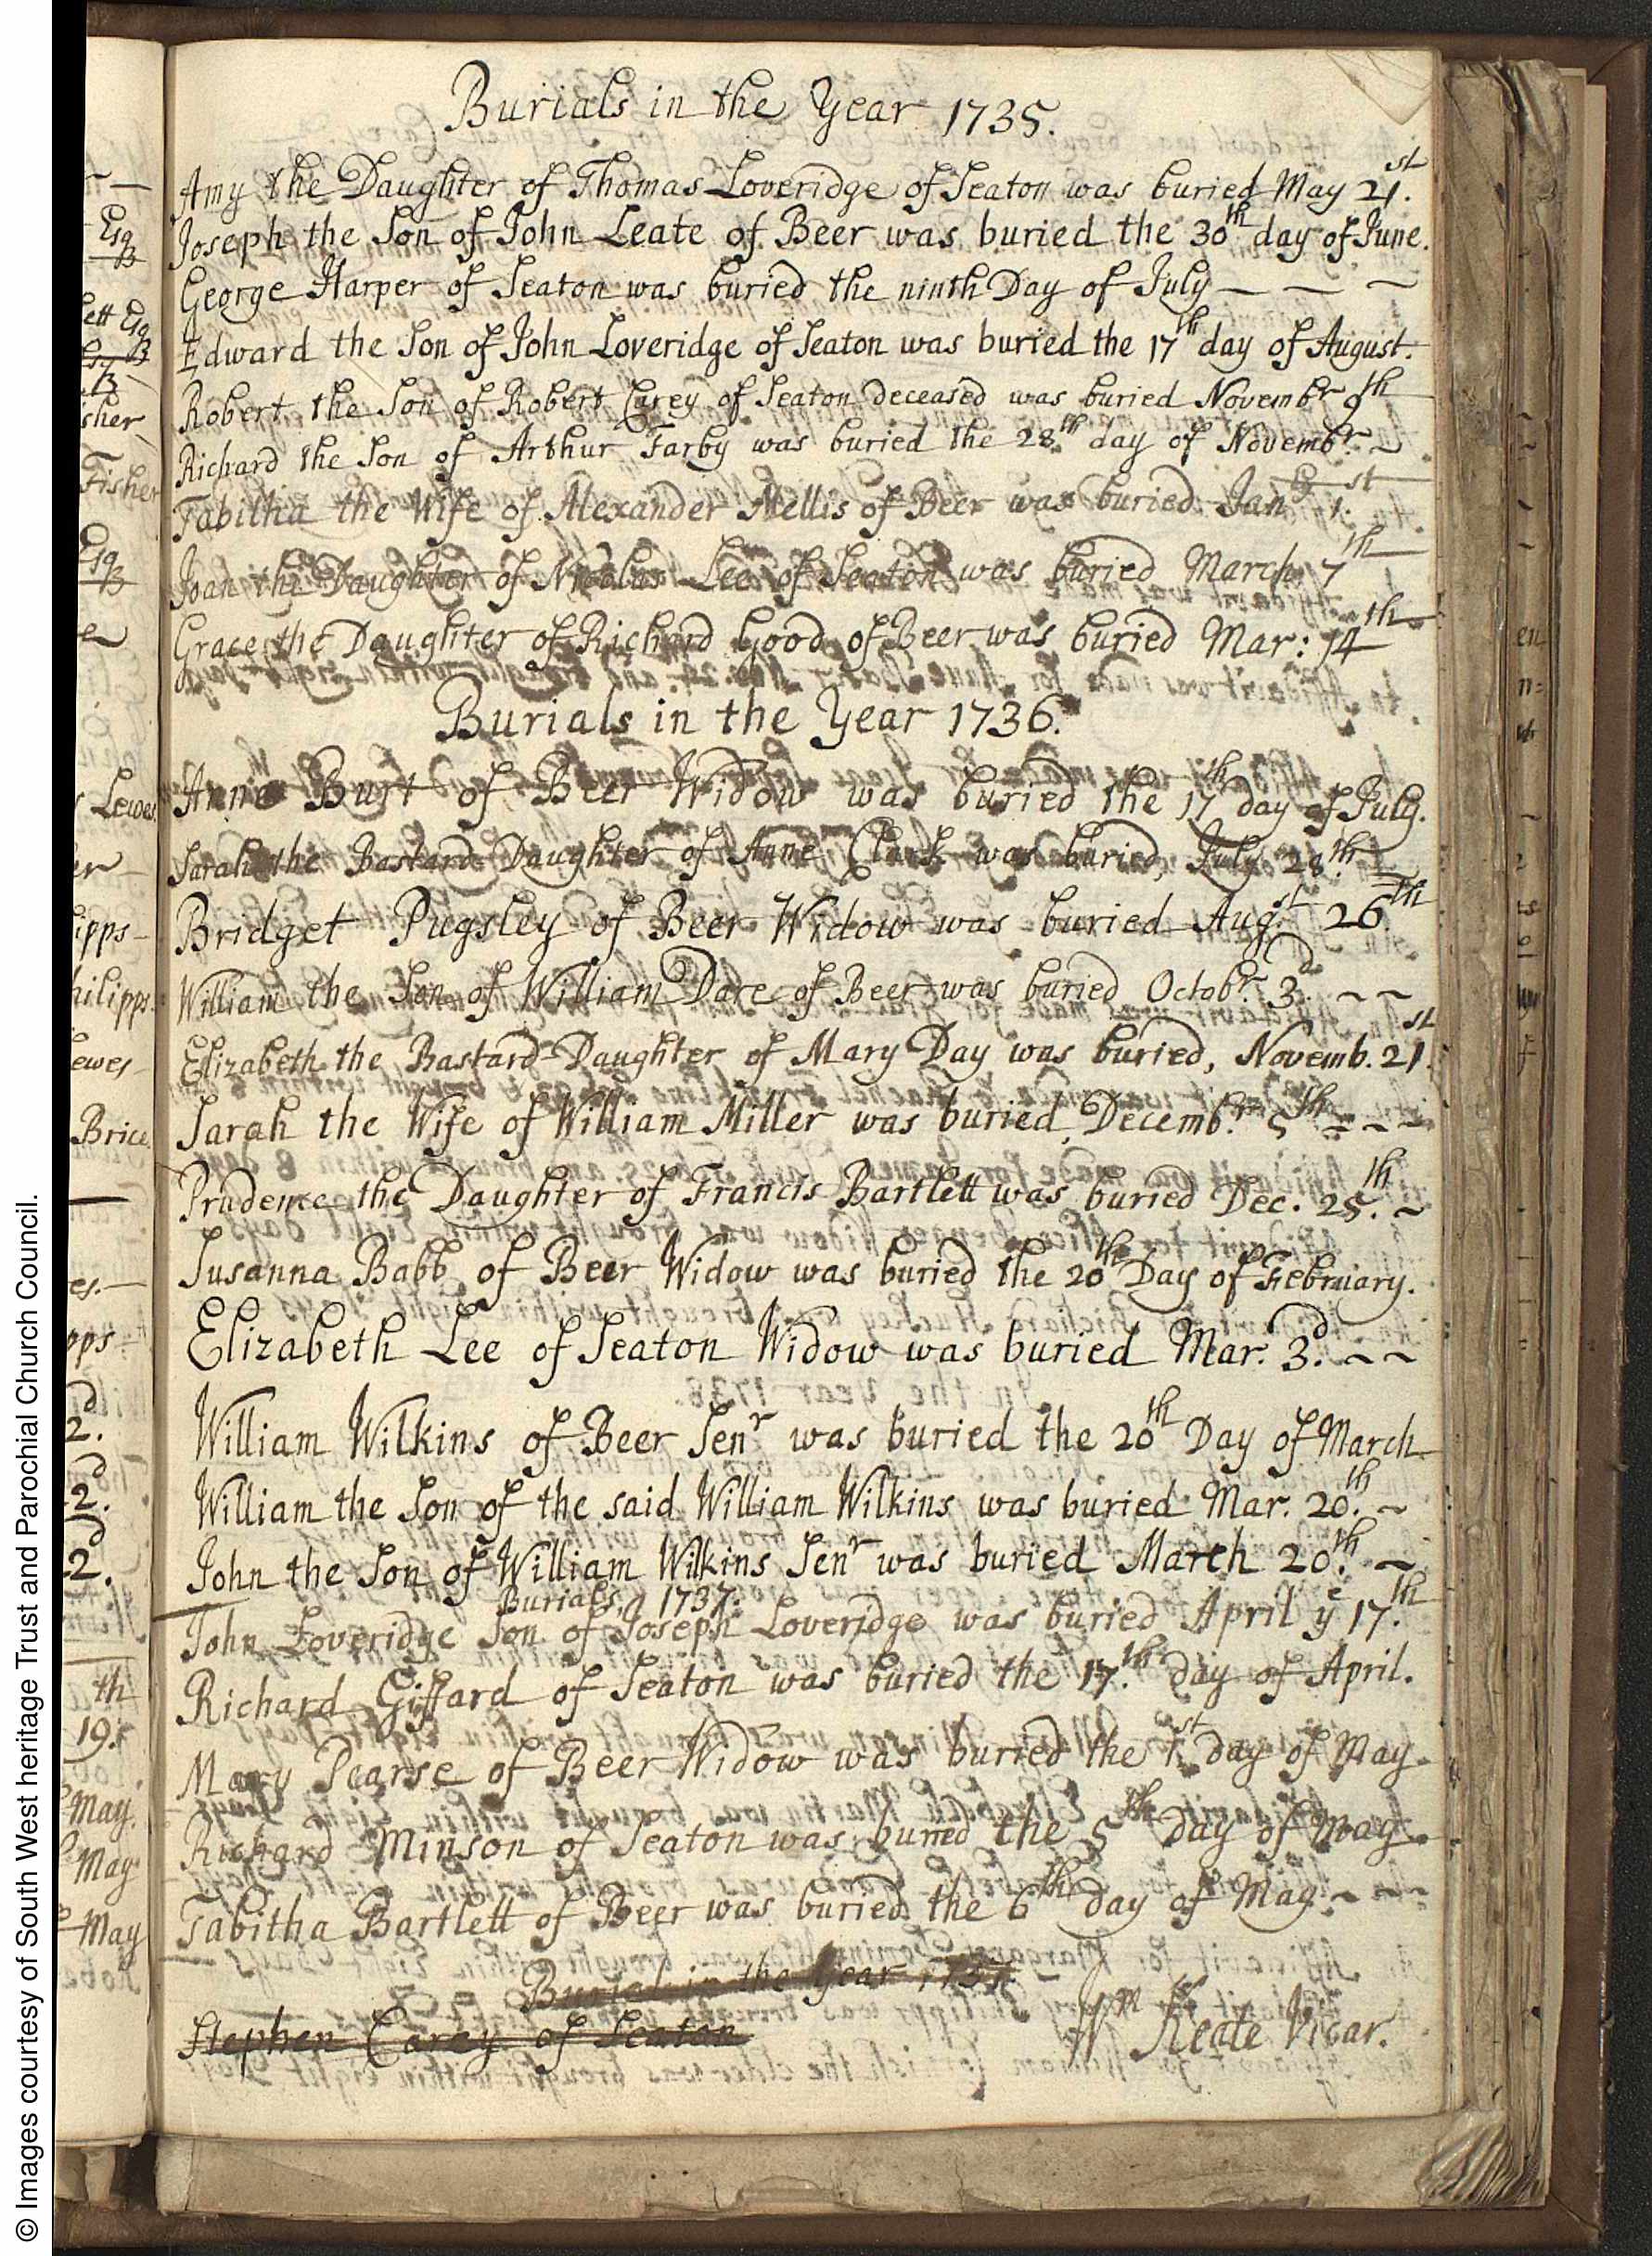 Burials in the Year 1735.
Amy the Daughter of Thomas Loveridge of Seaton was buried May 21.st
Joseph the Son of John Leate of Beer was buried the 30th day of June.
George Harper of Seaton was buried the ninth Day of July — — ~
Edward the Son of John Loveridge of Seaton was buried the 17th day of August.
Robert the Son of Robert Carey of Seaton deceased was buried Novembr 9th
Richard the Son of Arthur Farby was buried the 28.th day of Novembr. ~
Tabitha the Wife of Alexander Mellis of Beer was buried Jan 1.st
Joan the Daughter of Nicolas Lee of Seaton was buried March 7th
Grace the Daughter of Richard Good of Beer was buried Mar: 14th
Burials in the Year 1736.
Anne Bust of Beer Widow was buried the 17th day of July.
Sarah the Bastard Daughter of Anne Clark was buried, July 28.th
Bridget Pugsley of Beer Widow was buried Augst. 26th
William the Son of William Dare of Beer was buried Octobr. 3d. ~ ~
Elizabeth the Bastard Daughter of Mary Day was buried, Novemb. 21st.
Sarah the Wife of William Miller was buried, Decembr. 5th ~ ~ ~
Prudence the Daughter of Francis Bartlett was buried Dec. 25.th ~
Susanna Babb of Beer Widow was buried the 20th Day of February.
Elizabeth Lee of Seaton Widow was buried Mar. 3d. ~ ~
William Wilkins of Beer Senr was buried the 20th Day of March
William the Son of the said William Wilkins was buried Mar. 20.th ~
John the Son of William Wilkins Senr was buried March 20.th ~
Burials 1737.
John Loveridge Son of Joseph Loveridge was buried April ye 17.th
Richard Giffard of Seaton was buried the 17.th day of April.
Mary Pearse of Beer Widow was buried the 1.st day of May
Richard Minson of Seaton was buried the 5th day of May
Tabitha Bartlett of Beer was buried the 6th day of May ~ ~ ~
Burials in the Year 1737
Stephen Carey of Seaton
Wm Keate Vicar.
Esq
ett Esq
sher
Fisher
Esq
Lewes
er
ipps
hilipps
ewes
Brice
es.
pps
d
2.
d
2.
d
2.
th
19.
May.
May
May
© Images courtesy of South West heritage Trust and Parochial Church Council.